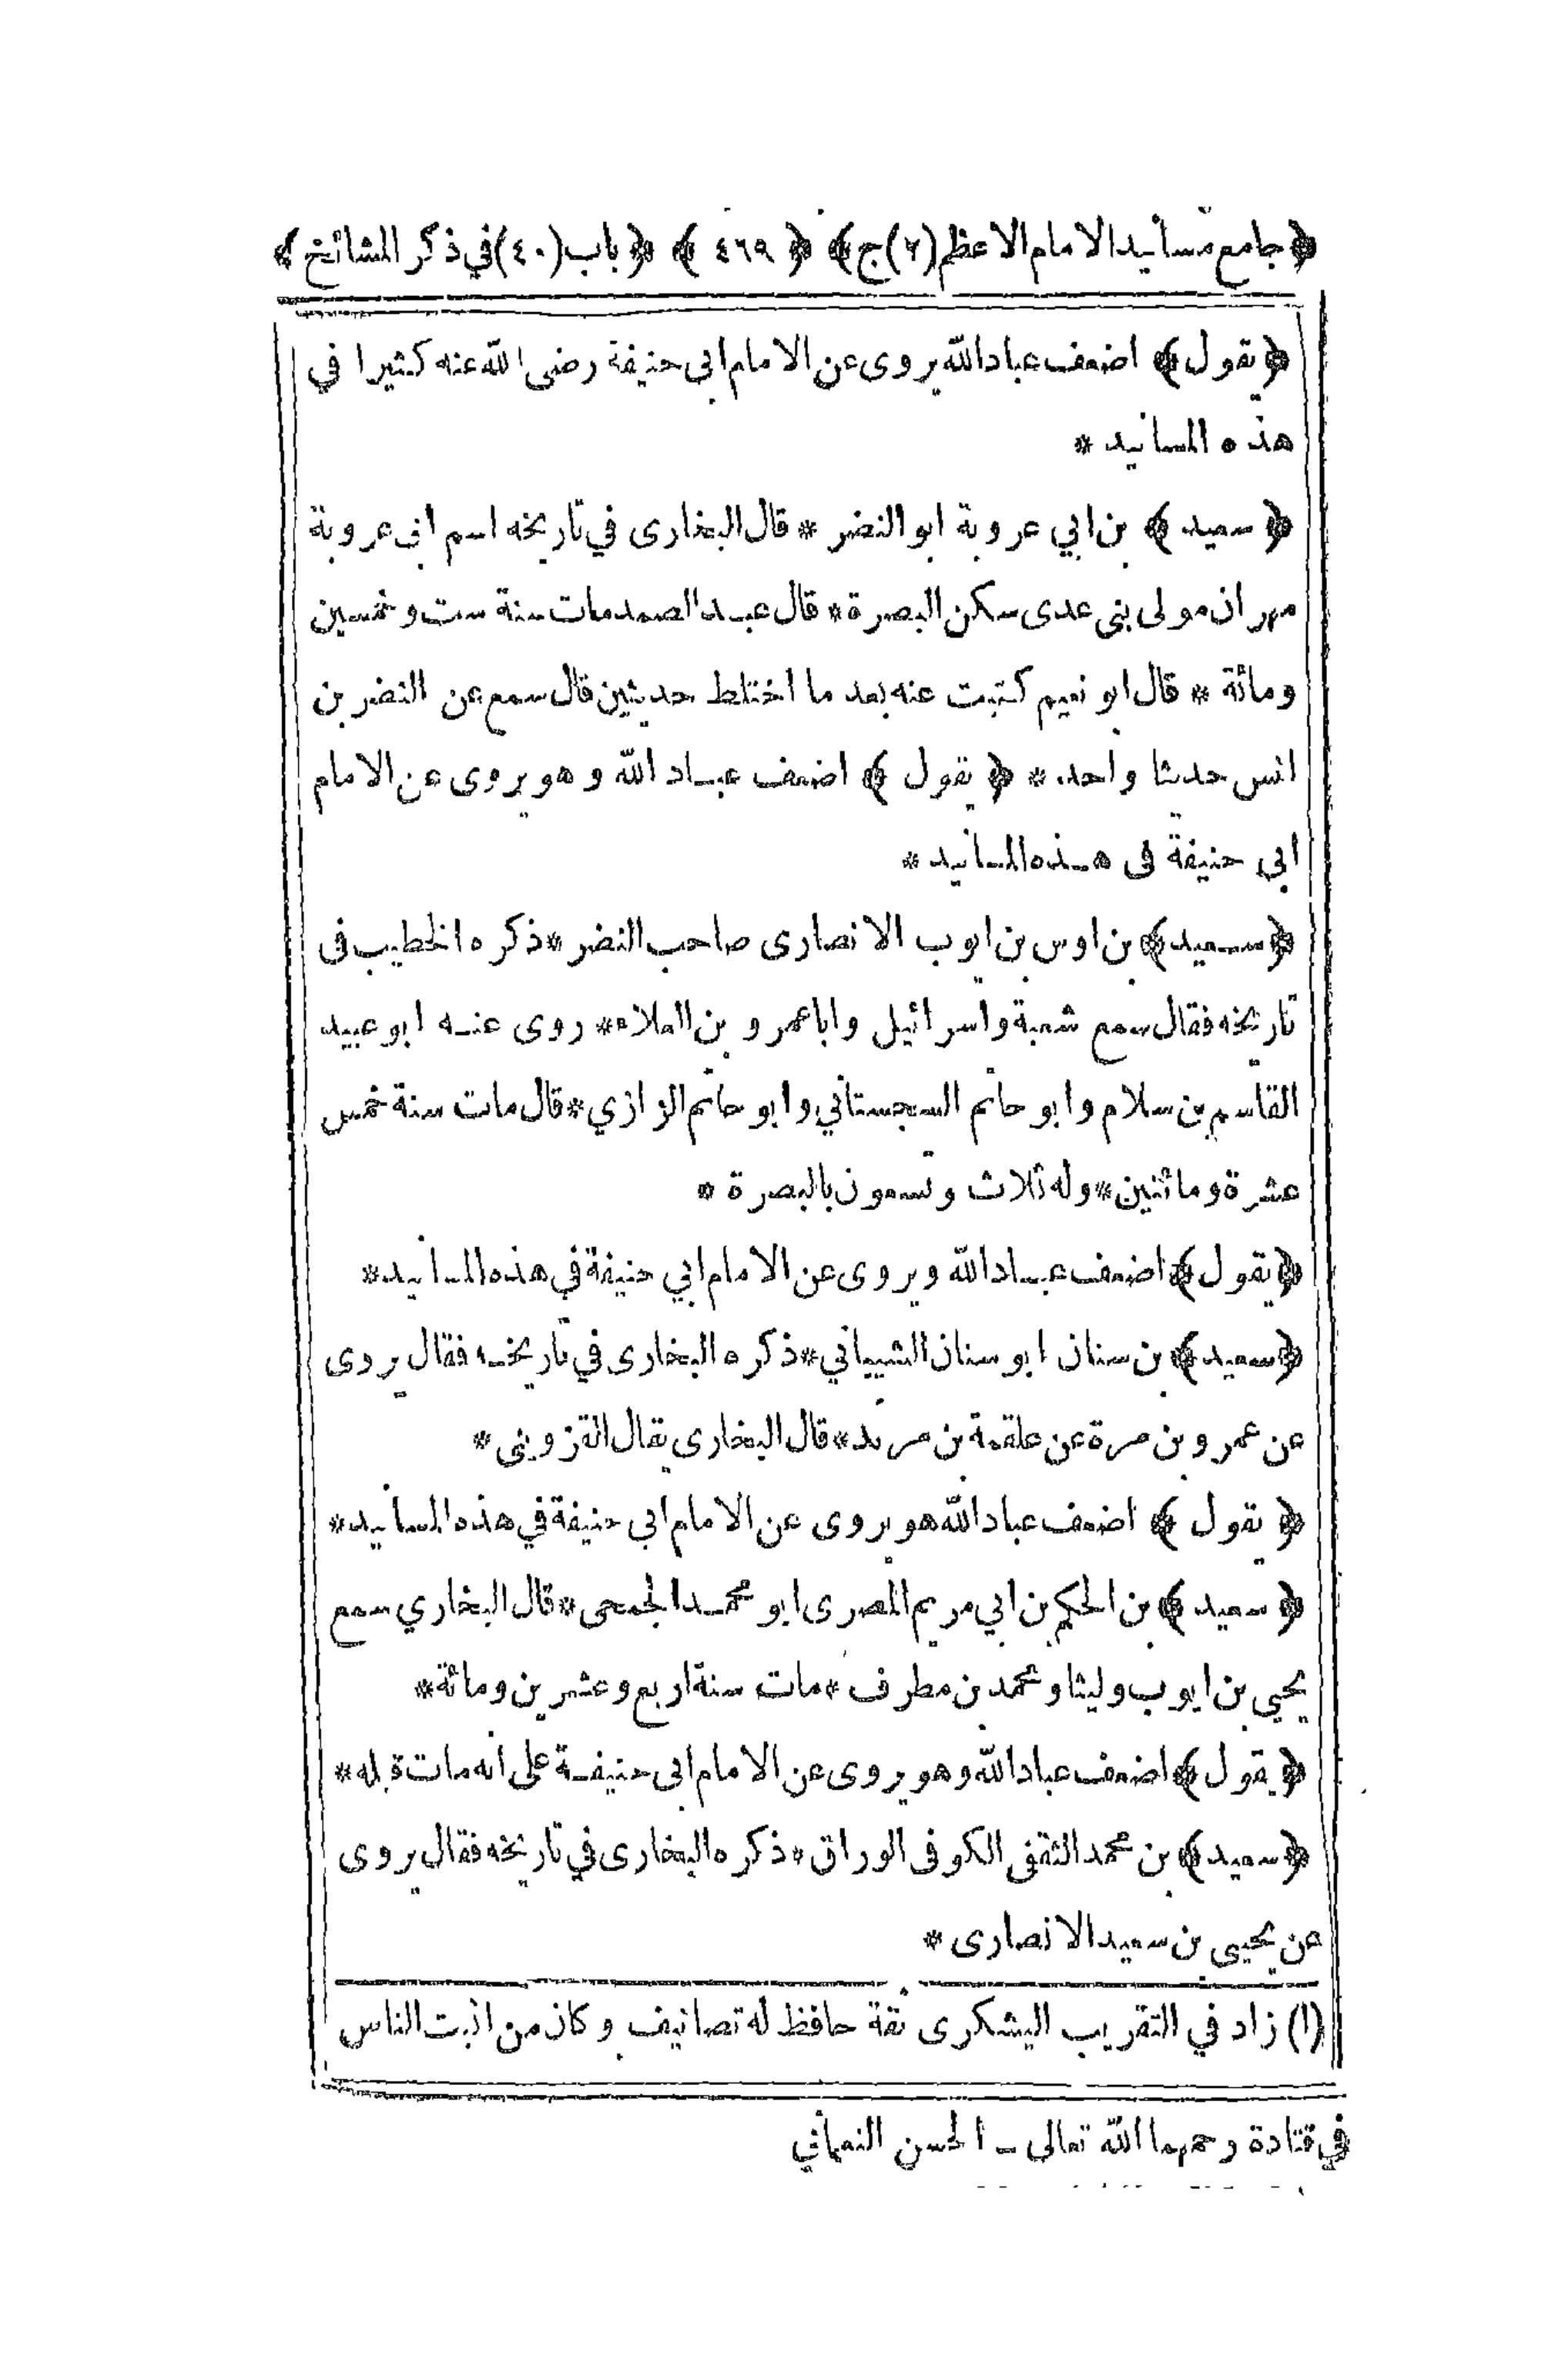 ﴿جامع مسانيد الامام الاعظم (٢) ج﴾ ﴿٤٦٩﴾ ﴿باب (٤٠) في ذكر المشائخ﴾
﴿يقول﴾ اضعف عباد الله يروى عن الامام ابى حنيفة رضى الله عنه كثيرا في
هذه المسانيد *
﴿سعيد﴾ بن ابي عروبة ابو النضر * قال البخارى في تاريخه اسم ابى عروبة
مهران مولى بنى عدى سكن البصرة * قال عبد الصمد مات سنة ست وخمسين
ومائة * قال ابو نعيم كتبت عنه بعد ما اختلط حديثين قال سمع عن النضر بن
انس حديثا واحد. * ﴿يقول﴾ اضعف عباد الله وهو يروى عن الامام
ابى حنيفة فى هذه المسانيد *
﴿سعيد﴾ بن اوس بن ايوب الانصارى صاحب النضر * ذكره الخطيب فى
تاريخه فقال سمع شعبة واسرائيل واباعمرو بن العلاء * روى عنه ابو عبيد
القاسم بن سلام وابو حاتم السجستاني وابو حاتم الرازي * قال مات سنة خمس
عشرة ومائتين * وله ثلاث وتسعون بالبصرة *
﴿يقول﴾ اضعف عباد الله ويروى عن الامام ابي حنيفة في هذه المسانيد *
﴿سعيد﴾ بن سنان ابو سنان الشيبانى * ذكره البخارى في تاريخه فقال يروى
عن عمرو بن مرة عن علقمة بن مرثد * قال البخارى يقال القزوينى *
﴿يقول﴾ اضعف عباد الله هو يروى عن الامام ابى حنيفة في هذه المسانيد *
﴿سعيد﴾ بن الحكم بن ابي مريم المصرى ابو محمد الجمحى * قال البخاري سمع
يحيي بن ايوب وليثا ومحمد بن مطرف * مات سنة اربع وعشرين ومائة *
﴿يقول﴾ اضعف عباد الله وهو يروى عن الامام ابى حنيفة على انه مات قبله *
﴿سعيد﴾ بن محمد الثقفى الكوفى الوراق * ذكره البخارى في تاريخه فقال يروى
عن يحيى بن سعيد الانصارى *
(١) زاد في التقريب اليشكرى ثقة حافظ له تصانيف وكان من اثبت الناس
في قتادة رحمهما الله تعالى ـ الحسن النعماني